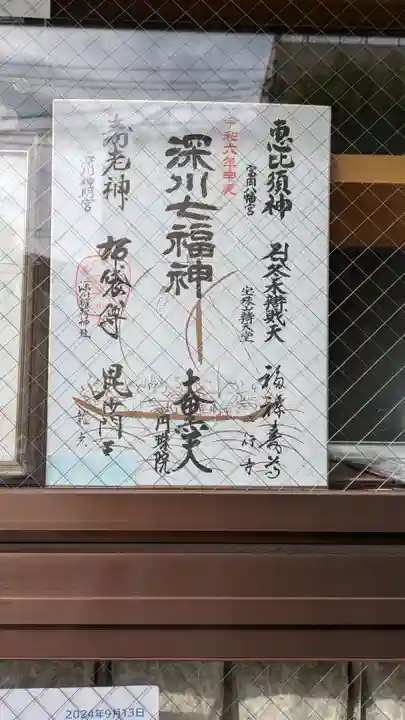 恵比須神
富岡八幡宮
冬木辨財天
福禄寿尊
令和六年
深川七福神
大黒天
円珠院
寿老神
深川神明宮
布袋尊
深川稲荷神社
毘沙門天
2024年9月13日